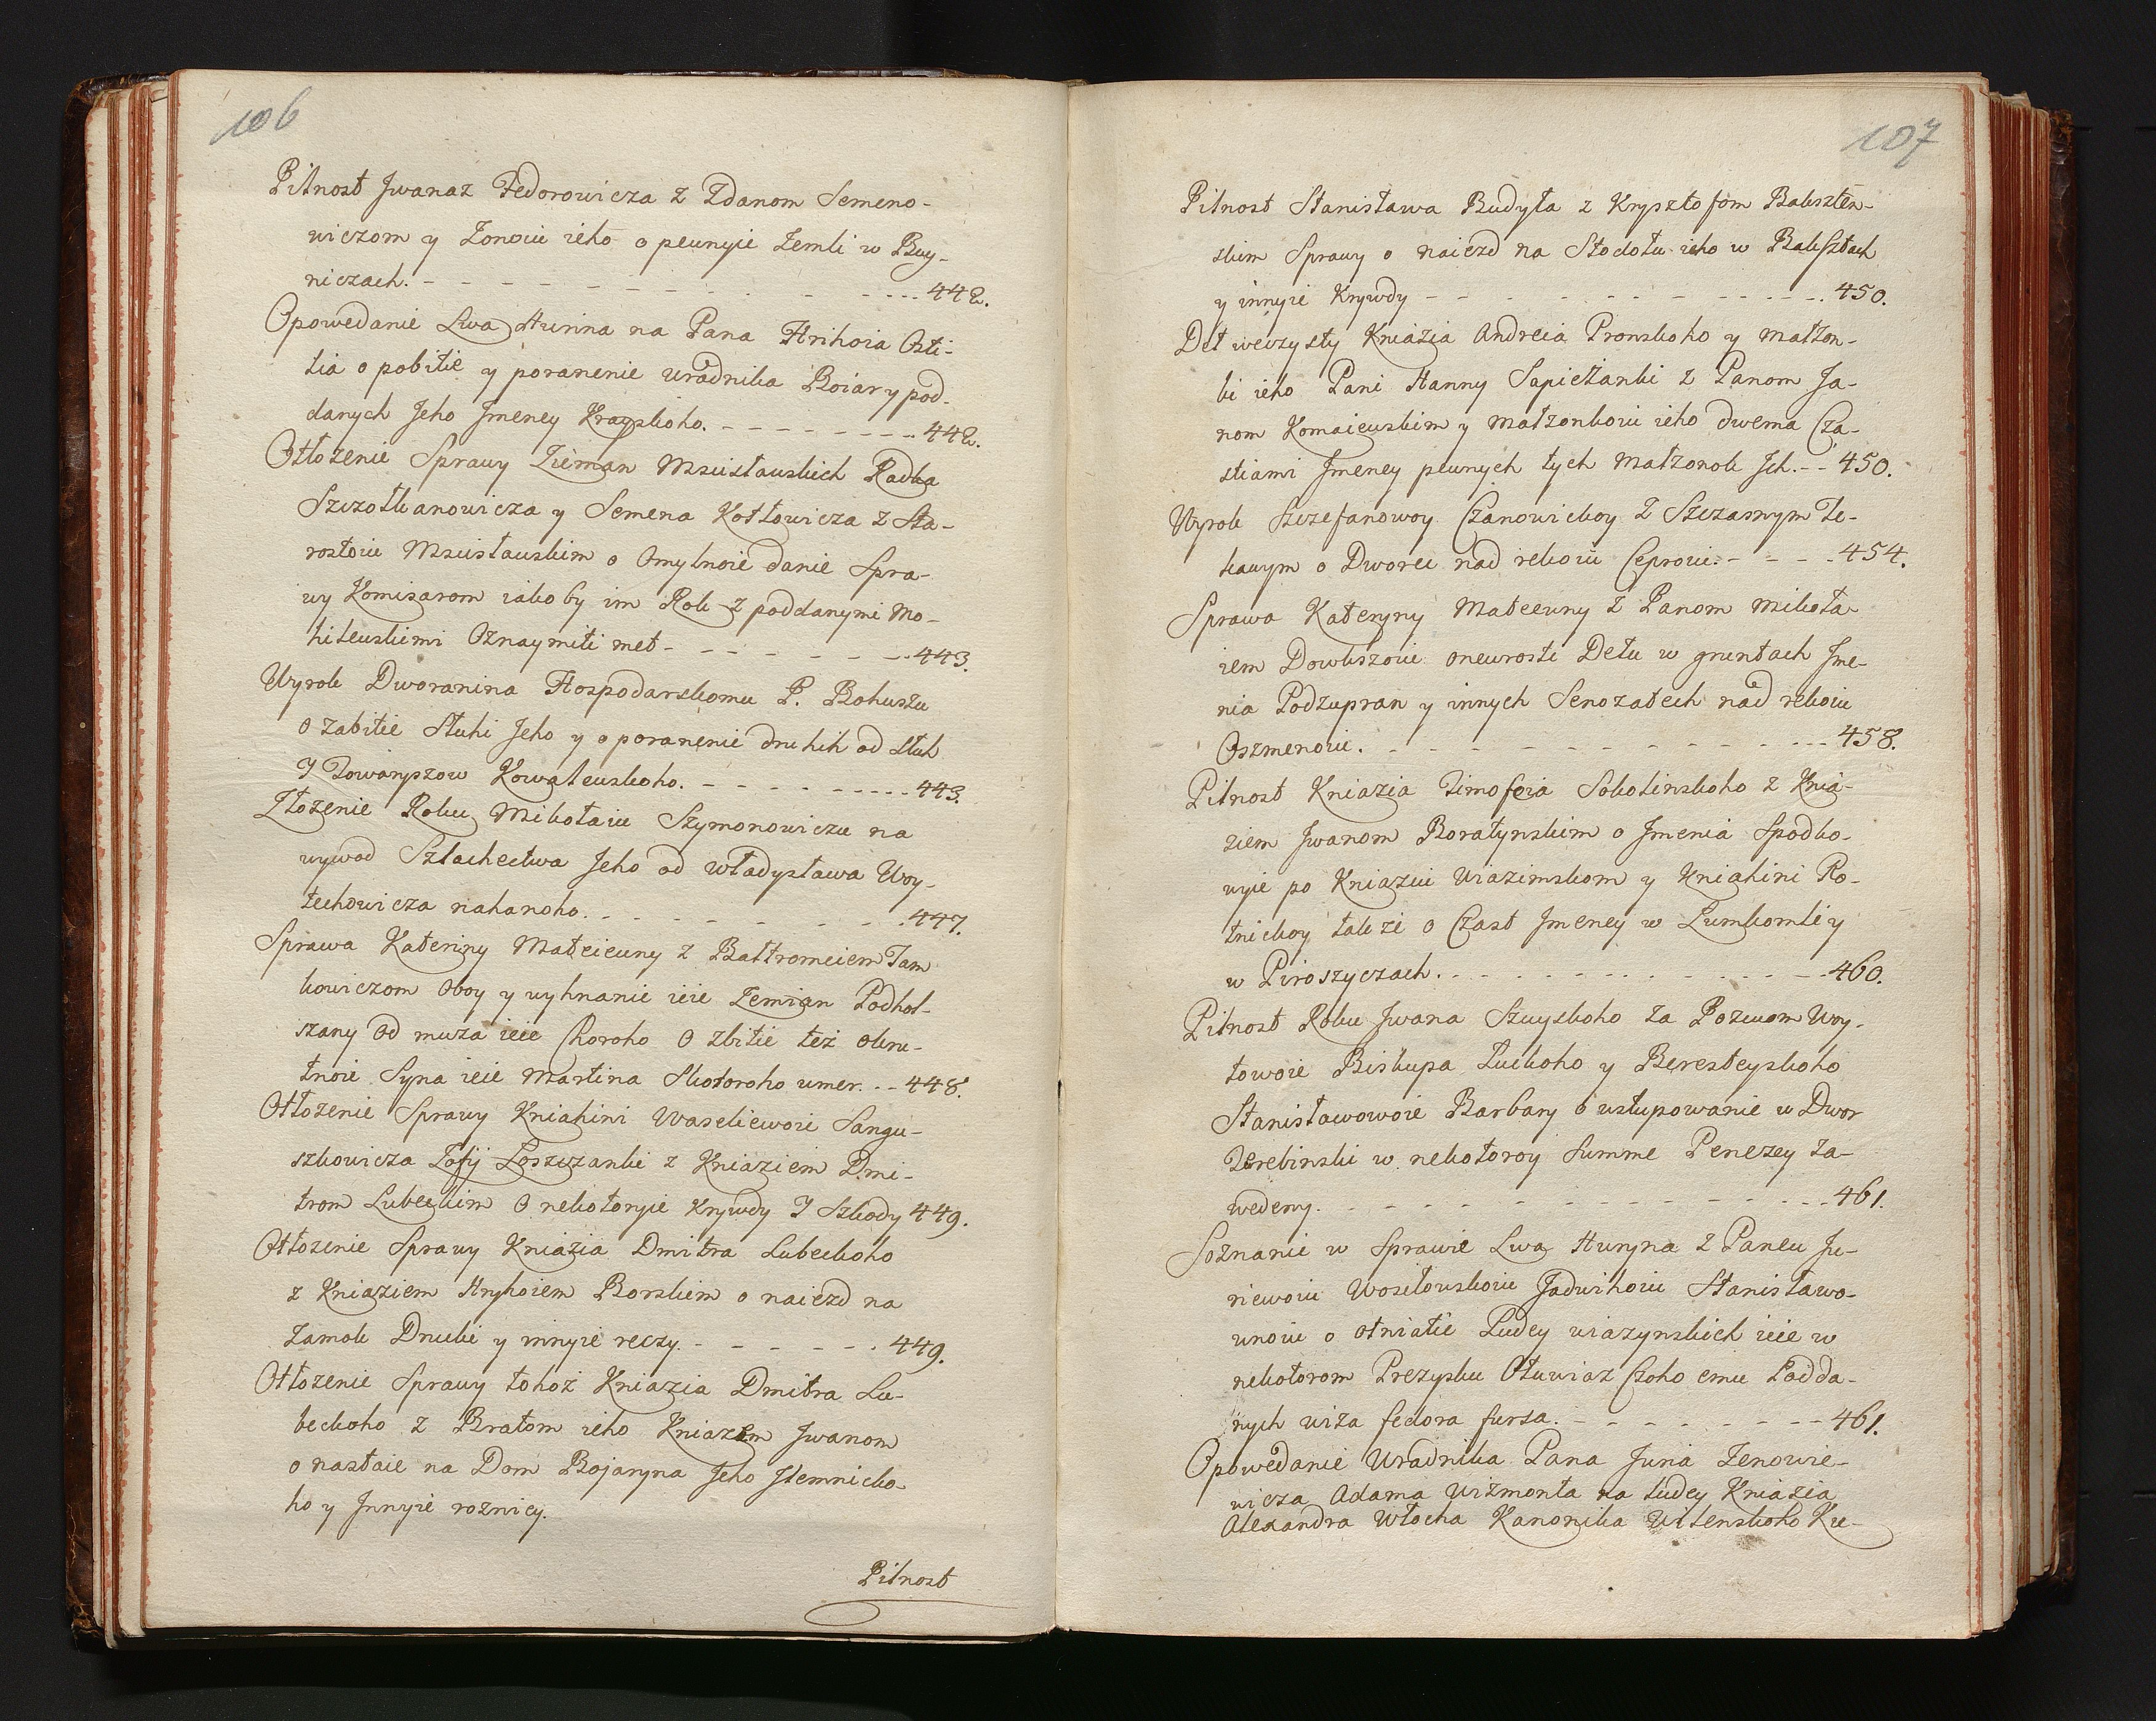 106
Pilnost Jwanaz Fedorowicza z Zdanom Semeno-
wiczom y Zonoiu ieho o pewnyie Zemli w Buy-
niczach. - - - - - - - - - - - - 442.
Opowedanie Lwa Hurina na Pana Hrihoia Osti-
kia o pobitie y poranenie uradnika Boiar y pod-
danych Jeho Jmeney Krayskoho. - - - - - - - - 442.
Otłozenie Sprawy Zieman Mscisławskich Radka
Szczołkanowicza y Semena Kotłowicza z Sta-
rostoiu Mscisławskim o Omylnoie danie Spra-
wy Komisarom iako by im Rok z poddanymi Mo-
hilewskiemi Oznaymiti meł - - - - - - - 443.
Wyrok Dworanina Hospodarskomu P. Bohuszu
o zabitie Sluhi Jeho y o poranenie druhih od Sluh
J Towaryszow Kowalewskoho. - - - - - - - - 443.
Złozenie Roku Mikołaiu Szymonowiczu na
wywod Szlachectwa Jeho od władysława Woy-
techowicza nahanoho. - - - - - - - 447.
Sprawa Kateriny Mateiewny z Baltromeiem Jam
kowiczom Oboy y wyhnanie ieie Zemian Podhol-
szany Od muza ieie Choroho O zbitie też okru-
tnoie Syna ieie Martina Skotoroho umer. - - 448.
Otłozenie Sprawy Kniahini Wasiliewoie Sangu-
szkowicza Zofij Loszczanki z Kniaziem Dmi-
trom Lubeckim O nekotoryie Krywdy J Szkody 449.
Otłozenie Sprawy Kniazia Dmitra Lubeckoho
z Kniaziem Hryhoiem Borskim o naiezd na
Zamok Drucki y innyie reczy. - - - - - - - 449.
Otłozenie Sprawy tohoż Kniazia Dmitra Lu-
beckoho z Bratom ieho Kniazem Jwanom
o nastaie na Dom Bojaryna Jeho Jlemnicko-
ho y Jnnyie roznicy.
Pilnost
107
Pilnost Stanisława Budyla z Krysztofom Baksztan-
skim Sprawy o naiezd na Stodołu ieho w Baksztach
y innyie Krywdy - - - - - - - - - - - - 450.
Deł weczysty Kniazia Andreia Pronskoho y małzon-
ki ieho Pani Hanny Sapieżanki z Panom Ja-
nom Komaiewskim y małzonkoiu ieho dwema Cza-
stiami Jmeney pewnych tych małzonok Jch. - - 450.
Wyrok Szczefanowoy Czanowickoy z Szczasnym Te-
kawym o Dworec nad rekoiu Ceproiu. - - - - 454.
Sprawa Kateryny Mateewny z Panom Mikoła-
iem Dowkszoiu o newrosti Dełu w gruntach Jme-
nia Podzupran y innych Senozatech nad rekoiu
Oszmenoiu. - - - - - - - - - - - - 458.
Pilnost Kniazia Timofeia Sokolinskoho z Knia-
ziem Jwanom Boratynskim o Jmenia Spadko-
wyie po Kniaziu Wiazimskom y Kniahini Ro-
tnickoy takze o Czast Jmeney w Lumkomli y
w Piroszyczach. - - - - - - - - - - 460.
Pilnost Roku Jwana Szuyskoho za Pozwom Woy-
towoie Biskupa Luckoho y Beresteyskoho
Stanisławowoie Barbary o ustupowanie w Dwor
Zerebinski w nekotoroy Summe Penezey za-
wedeny. - - - - - - - - - - - - 461.
Soznanie w Sprawie Lwa Huryna z Paneu Ju-
riewoiu Wosiłowskoiu Jadwihoiu Stanisławo-
wnoiu o otniatie Ludey wiazynskich ieie w
nekotorom Prezysku Otuwiaz Czoho emu Podda-
nych wiza fedora fursa. - - - - - - - - - 461.
Opowedanie Uradnika Pana Juria Zenowie-
wicza Adama Wizmonta na ludey Kniazia
Alexandra Włocha Kanonika Wilenskoho Ku-